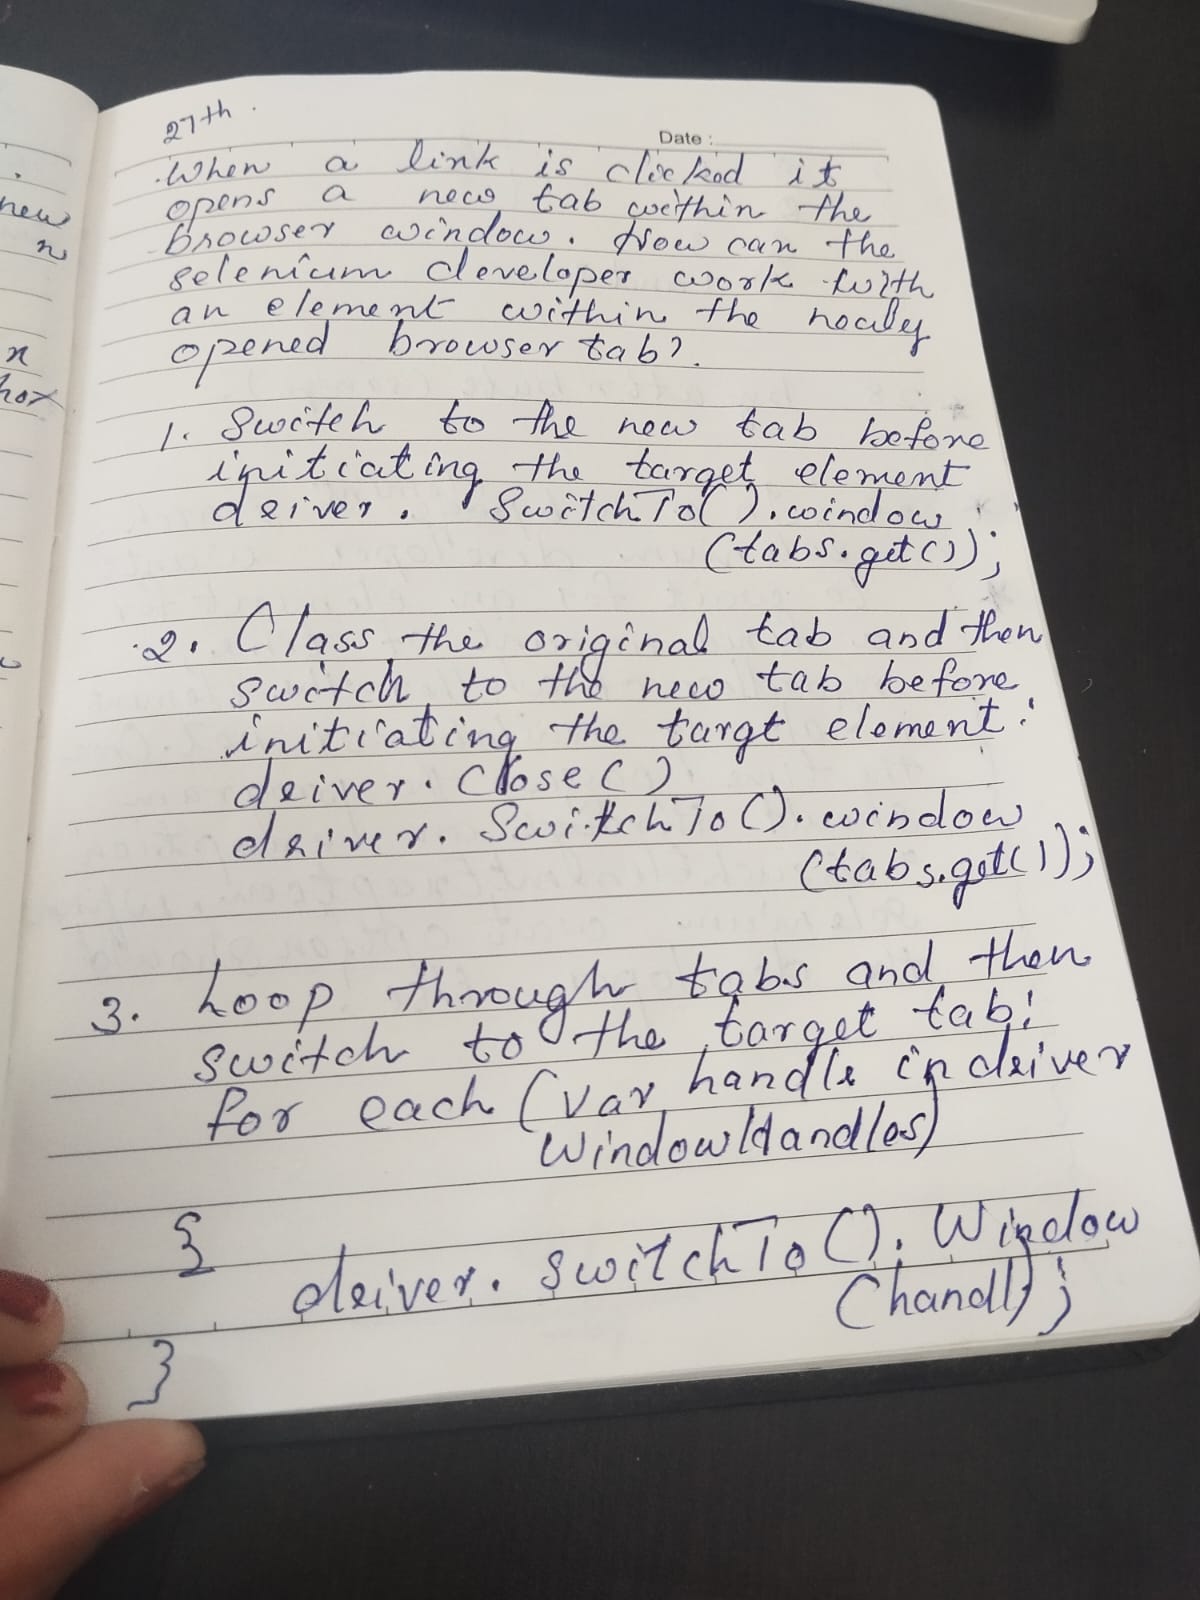 27th.
Date :
When a link is clicked it
opens a new tab within the
browser window. How can the
selenium developer work with
an element within the newly
opened browser tab?
1. Switch to the new tab before
initiating the target element
driver. SwitchTo().window
(tabs.get());
2. Class the original tab and then
switch to the new tab before
initiating the targt element:
driver. Close()
driver. SwitchTo().window
(tabs.get(1);
3. Loop through tabs and then
switch to the target tab:
for each (var handle in driver
WindowHandles)
{
driver. switchTo(). Window
(handl);
}
new
n
n
hot